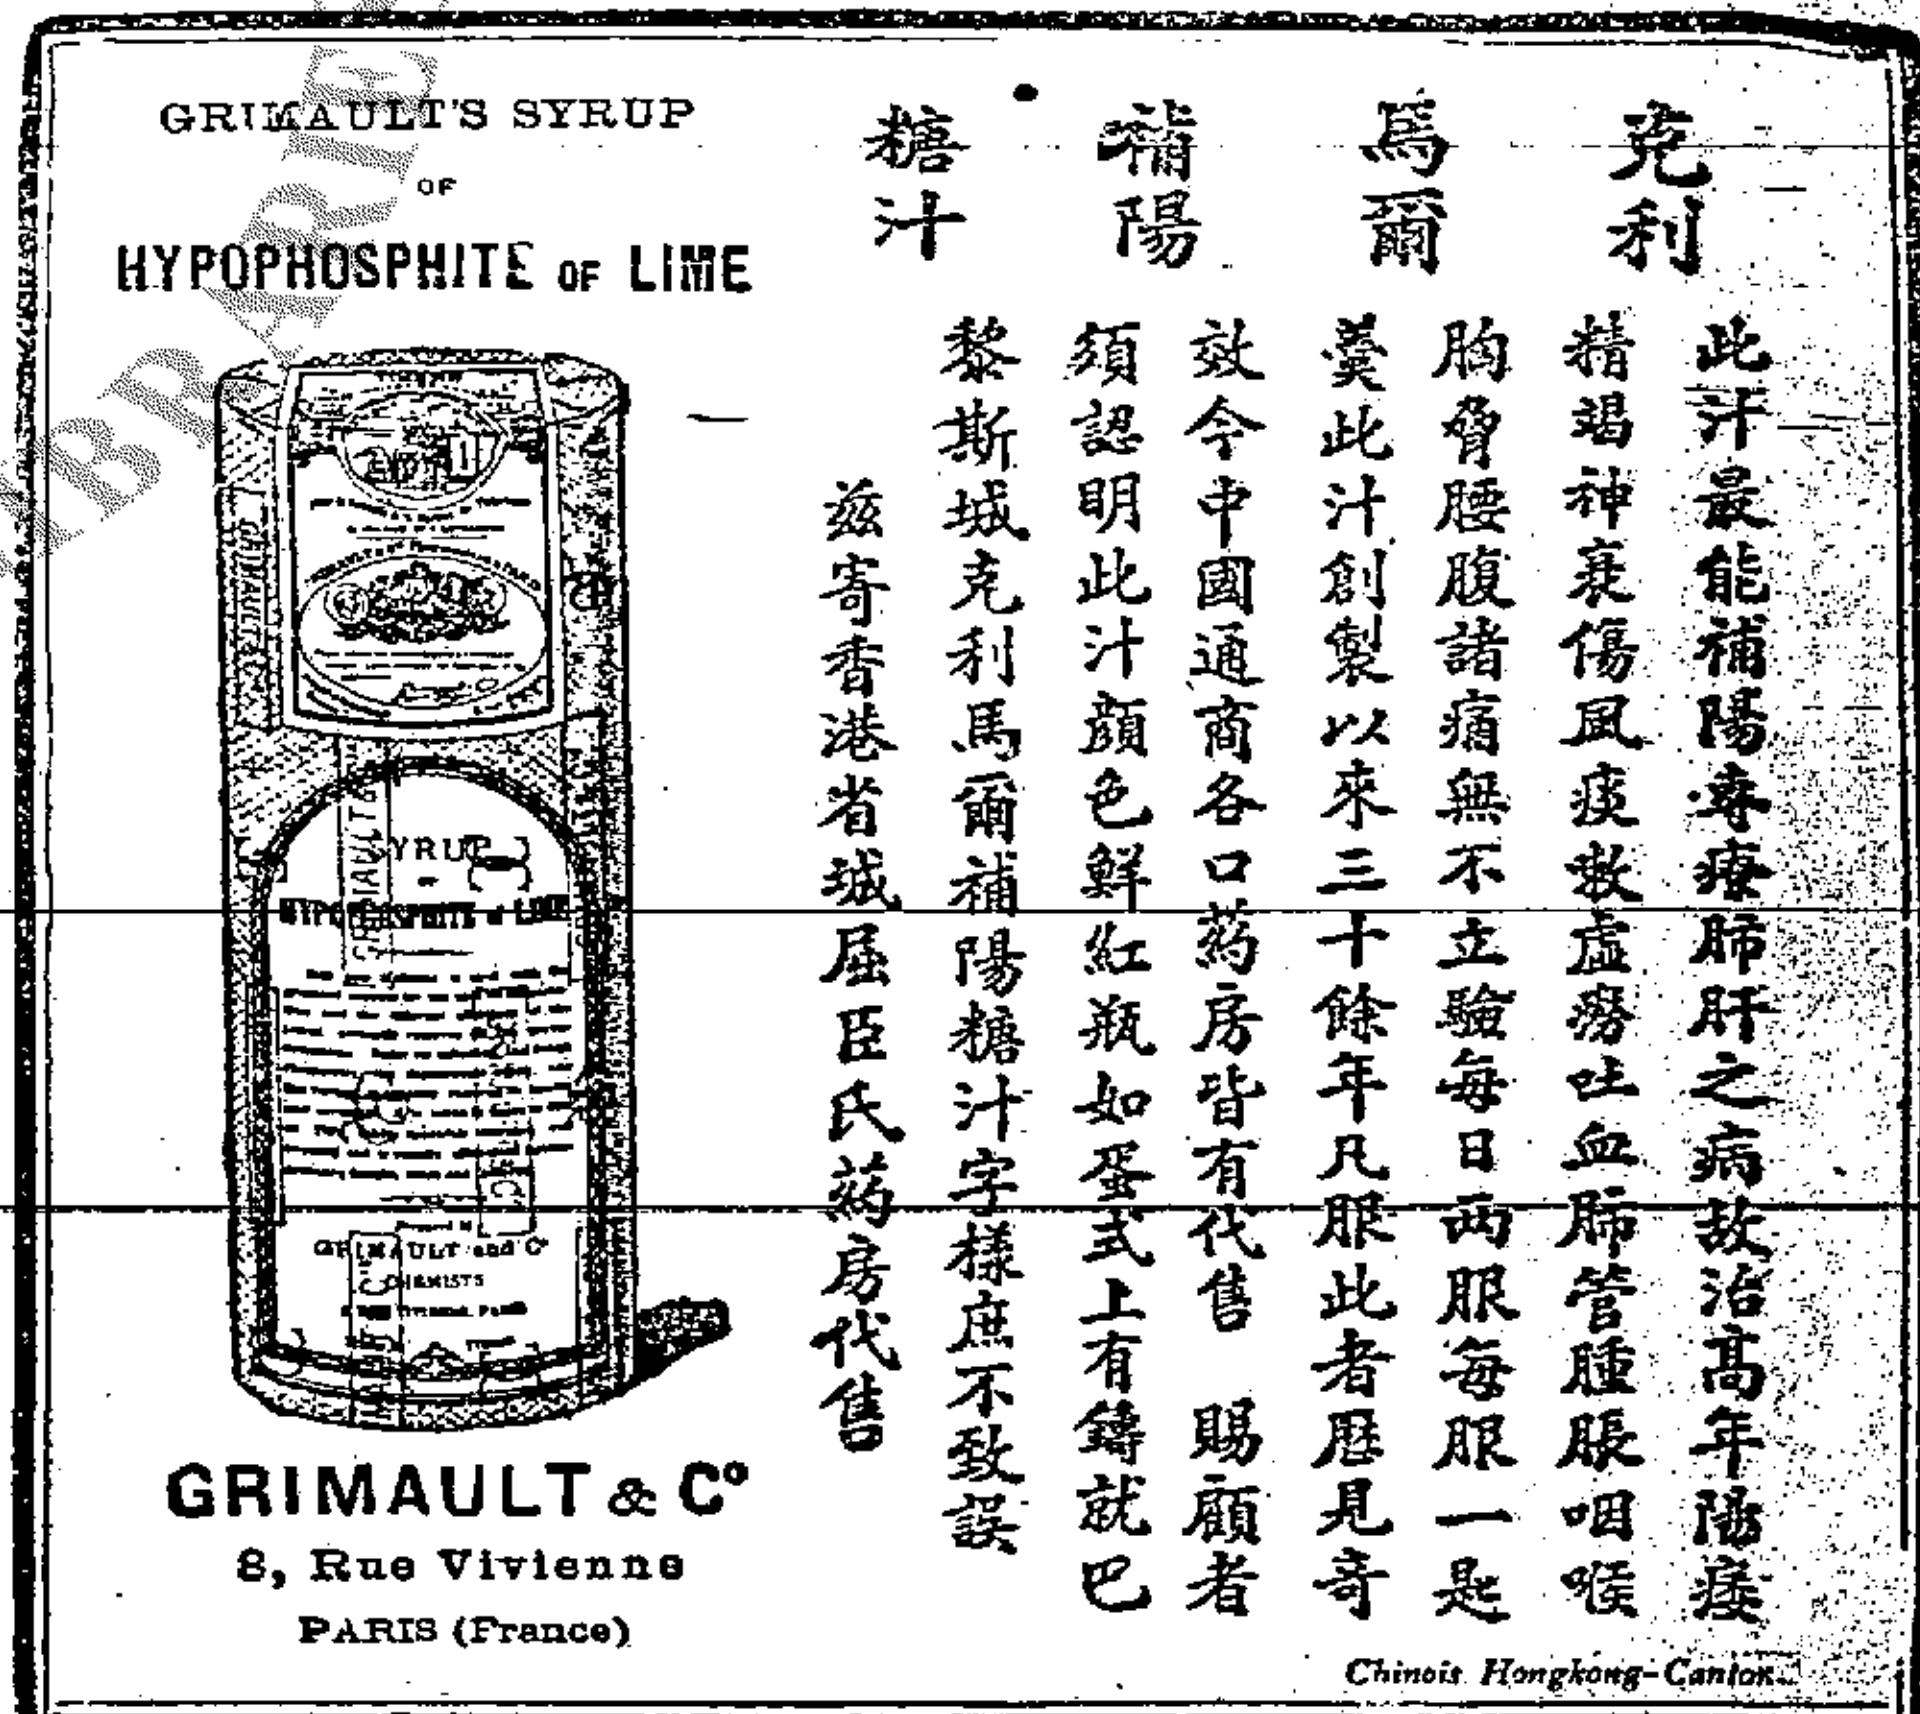 GRIMAULT'S SYRUP
OF
HYPOPHOSPHITE OF LIME
SYRUP
OF
HYPOPHOSPHITE of LIME
GRIMAULT and Co
CHEMISTS
GRIMAULT & Co
8, Rue Vivienne
PARIS (France)
克利
馬爾
補陽
糖汁
此汁最能補陽專療肺肝之病故治高年陽痿
精竭神衰傷風痰嗽虛癆吐血肺管腫脹咽喉
胸脅腰腹諸痛無不立驗每日兩服每服一匙
羹此汁創製以來三十餘年凡服此者歷見奇
效今中國通商各口葯房皆有代售 賜顧者
須認明此汁顏色鮮紅瓶如蛋式上有鑄就巴
黎斯城克利馬爾補陽糖汁字樣庶不致誤
茲寄香港省城屈臣氏葯房代售
Chinois Hongkong-Canton